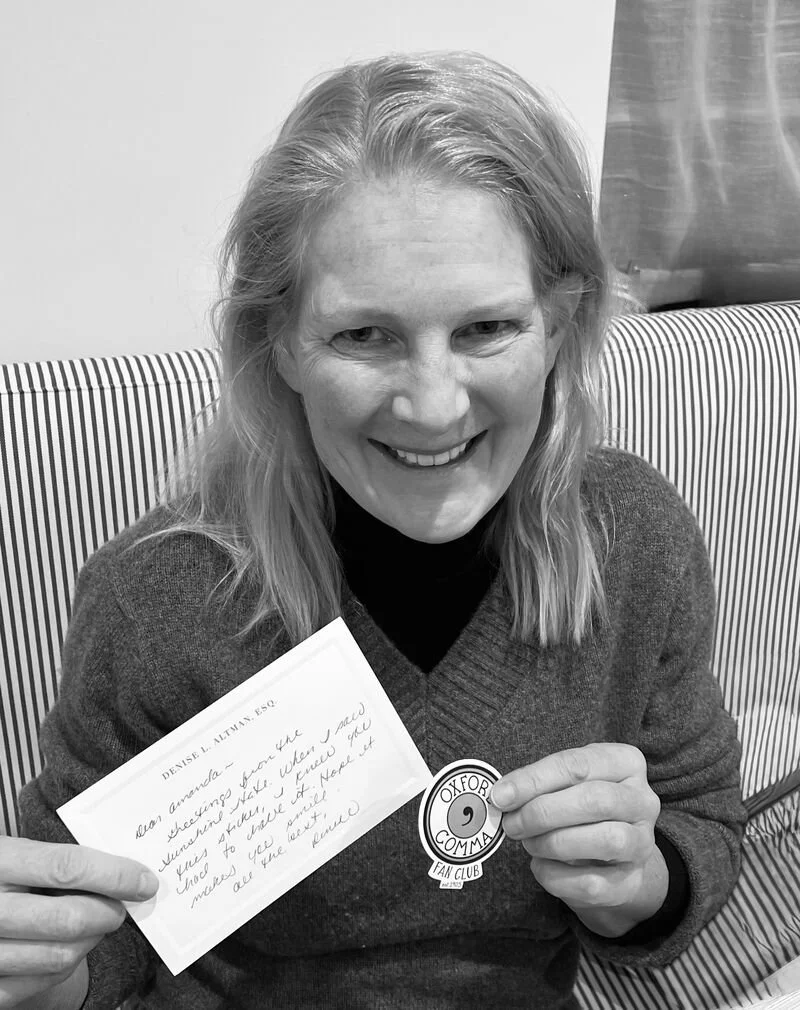 DENISE L. ALTMAN, ESQ.
Dear Amanda –
Greetings from the
Sunshine State. When I saw
this sticker, I knew you
had to have it. Hope it
makes you smile.
All the best,
Denise
OXFORD
,
COMMA
FAN CLUB
est. 1905